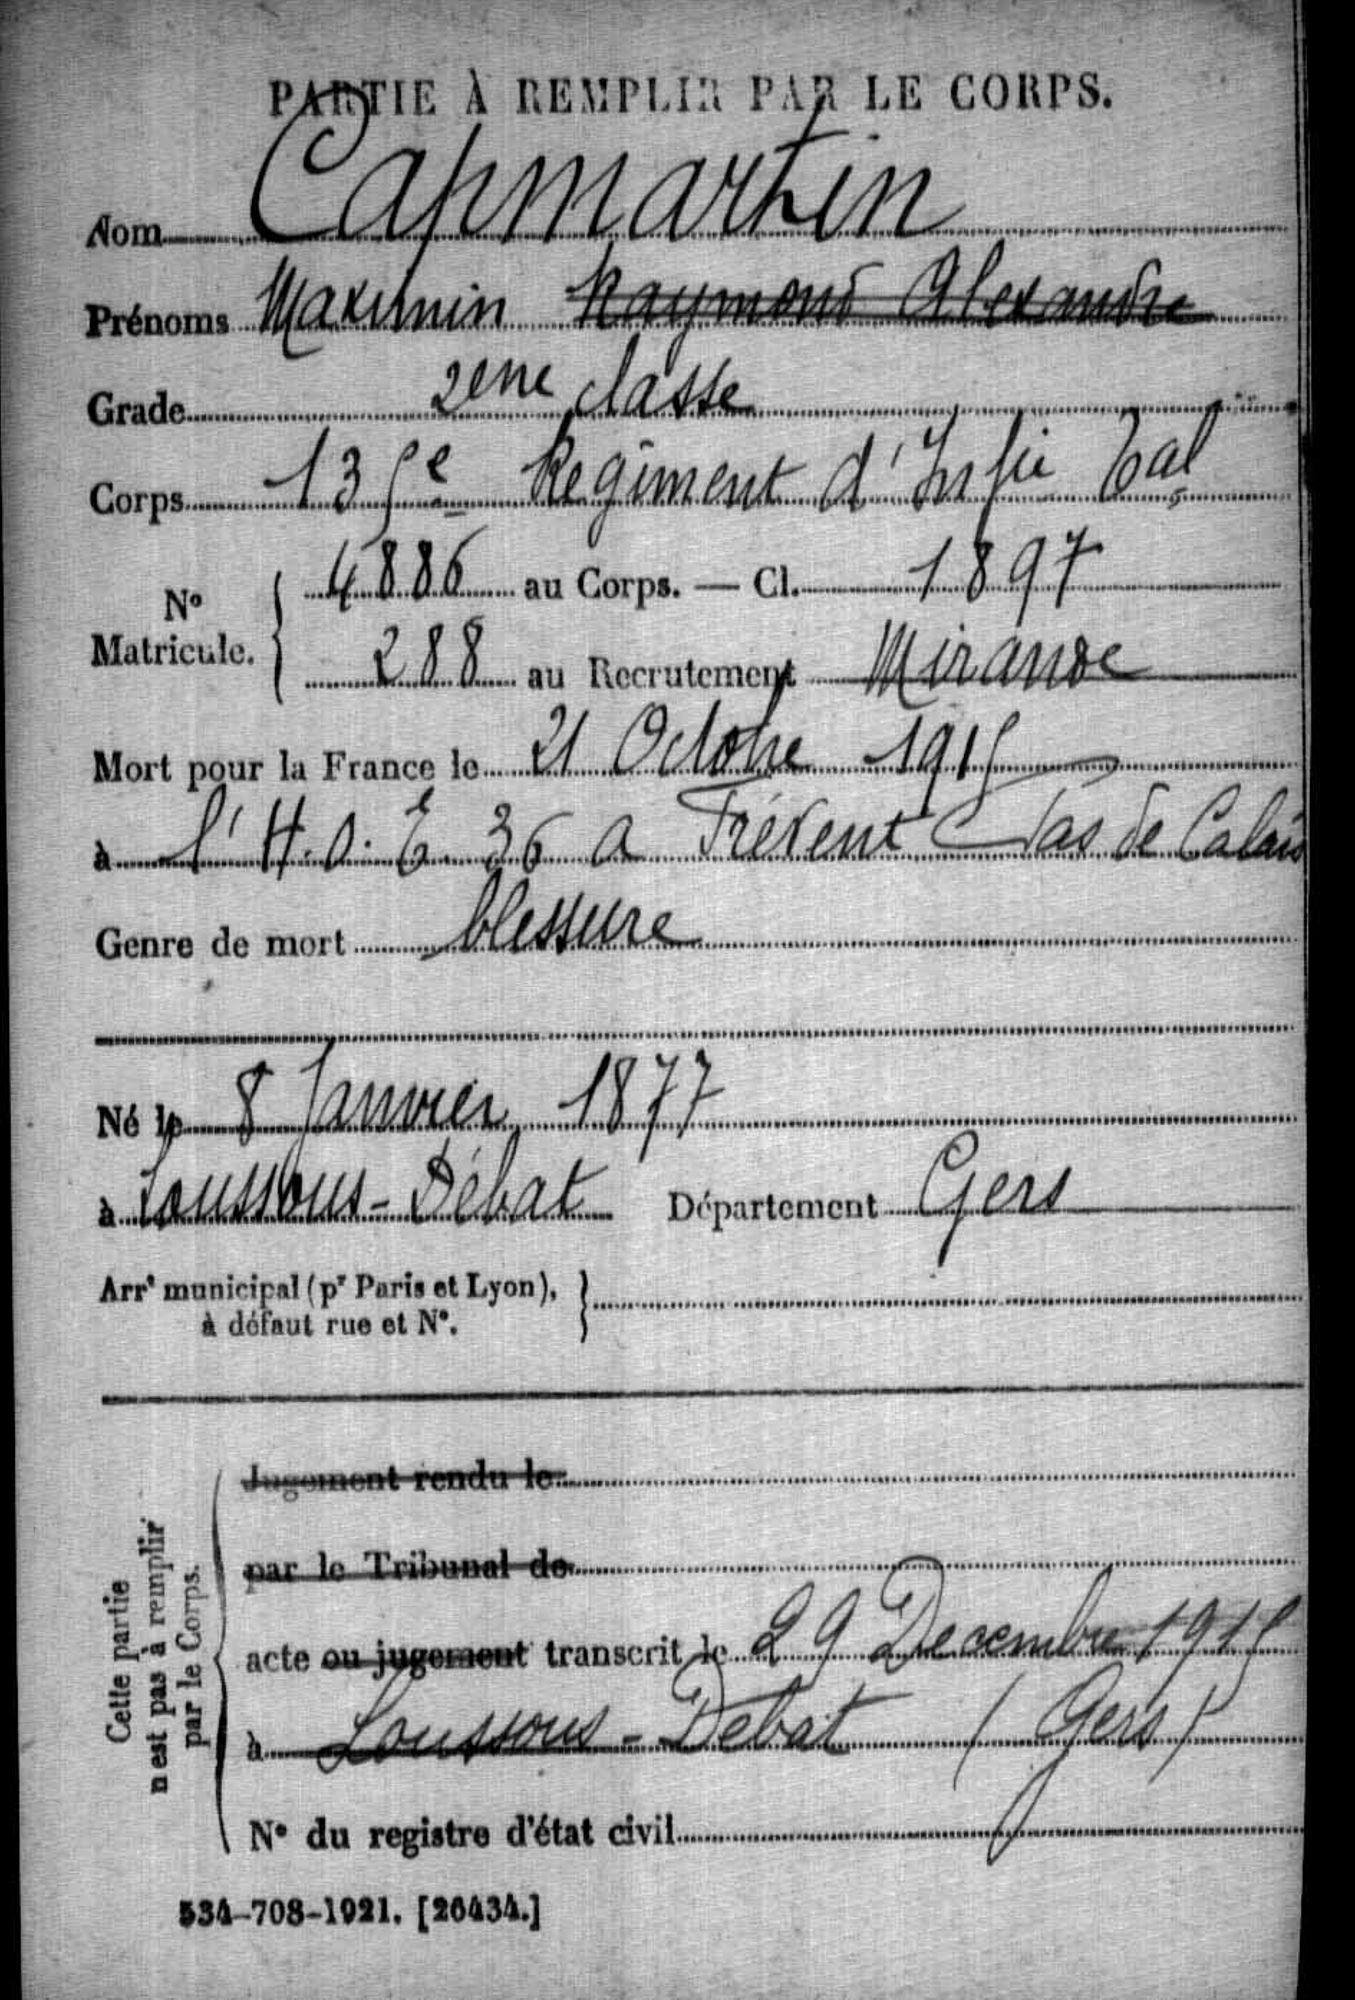 PARTIE À REMPLIR PAR LE CORPS.
Nom Capmartin
Prénoms Maximin Raymond Alexandre
Grade 2eme classe
Corps 135e Régiment d'Infie Tal
N° Matricule. 4886 au Corps. — Cl. 1897
288 au Recrutement Mirande
Mort pour la France le 21 Octobre 1915
à l'H.O.E. 36 a Frévent Pas de Calais
Genre de mort blessure
Né le 8 Janvier 1877
à Loussous-Débat Département Gers
Arrt municipal (pr Paris et Lyon),
à défaut rue et N°.
Cette partie
n'est pas à remplir
par le Corps.
Jugement rendu le
par le Tribunal de
acte ou jugement transcrit le 29 Decembre 1915
à Loussous-Debat (Gers)
N° du registre d'état civil
534-708-1921. [26434.]